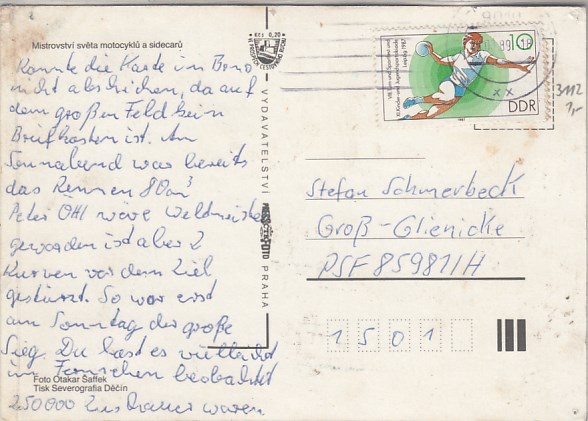 Mistrovství světa motocyklů a sidecarů
Konnte die Karte in Brno
nicht abschicken, da auf
dem großen Feld kein
Briefkasten ist. Am
Sonnabend war bereits
das Rennen 80cm³
Peter Öttl wäre Weltmeister
geworden ist aber 2
Kurven vor dem Ziel
gestürzt. So war erst
am Sonntag der große
Sieg. Du hast es vielleicht
im Fernsehen beobachtet
250000 Zuschauer waren
Foto Otakar Šaffek
Tisk Severografia Děčín
Kčs 0,20
VYDAVATELSTVÍ
PRESSFOTO
PRAHA
10
Leipzig 1987
DDR
1987
89
18
3112
Stefan Schmerbeck
Groß-Glienicke
PSF 85981/H
1501